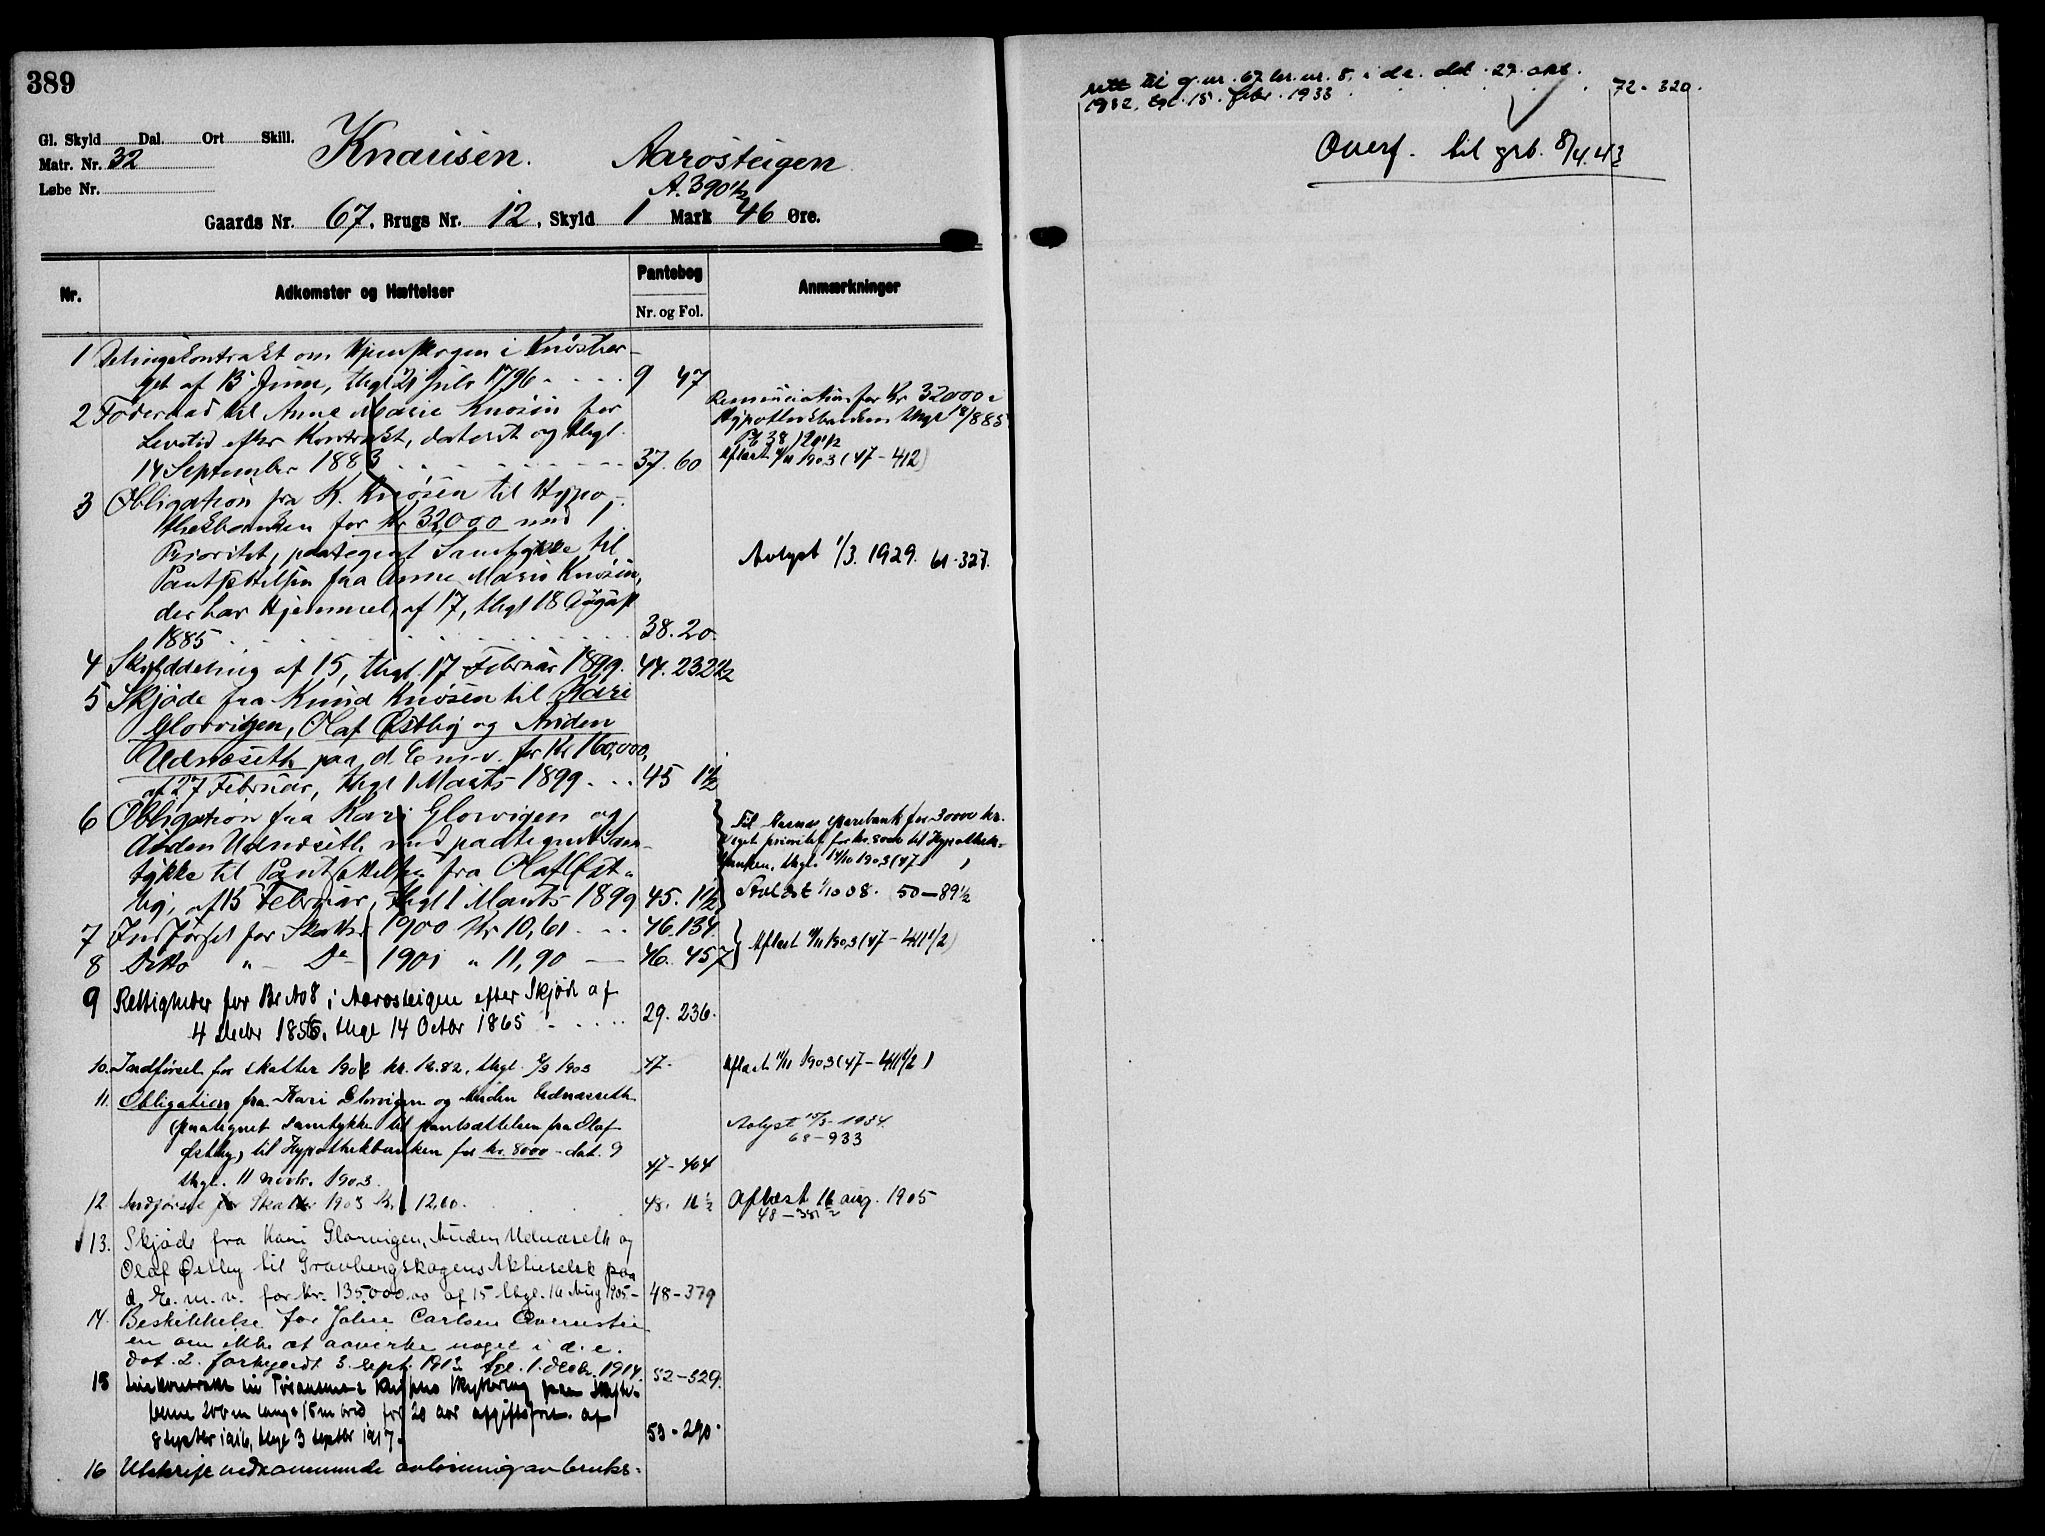 389
Gl. Skyld Dal. Ort Skill.
Matr. Nr. 32
Løbe Nr.
Knausen. Aarosteigen
A. 390 1/2
Gaards Nr. 67, Brugs Nr. 12, Skyld 1 Mark 46 Øre.
Nr. Adkomster og Hæftelser Pantebog Anmærkninger
Nr. og Fol.
1 Delingskontrakt om i Knösber-
get af 13 Juni, thgl 21 Juli 1796 9 47
2 Föderaad til Anne Marie Knösen for
Levetid efter Kontrakt, datert og thgl.
14 September 1883 37. 60
Renunciation for Kr 32000 i
Hypothekbanken thgl 18/8 85
Pb 38 / 20 1/2
Aflæst 11/11 1903 (47-412)
3 Obligation fra K. Knösen til Hypo-
thekbanken for Kr 32000 med 1
Prioritet, paategnet Samtykke til
Pantsættelsen fra Anne Marie Knösen,
der har Hjemmel, af 17, thgl 18 August
1885 38. 20.
Avlyst 1/3. 1929. 61-327.
4 Skylddeling af 15, thgl. 17 Februar 1899. 44. 232 1/2
5 Skjöde fra Knud Knösen til Kari
Glorvigen, Olaf Østby og Anden
Udnæseth paa d. E. m. v. for Kr 160,000,
af 27 Februar, thgl 1 Marts 1899 45 1 1/2
6 Obligation fra Kari Glorvigen og
Anden Udnæseth med paategnet Sam-
tykke til Pantsættelsen fra Olaf Øst-
by, af 15 Februar, thgl 1 Marts 1899 45. 1 1/2
Til sparebank for 30000 kr.
veget prioritet for kr. 8000 til Hypothek-
banken, thgl. 14/10 1903 (47 )
1/10 08. 50-89 1/2
7 Indförsel for Skatter 1900 Kr 10,61 46. 134.
8 Ditto " - Do 1901 " 11,90 46. 457
Aflæst 11/11 1903 (47-411 1/2)
9 Rettigheder for Br No 8 i Aarosteigen efter Skjöde af
4 Decbr 1856, thgl 14 Octbr 1865 29. 236.
10. Indförsel for skatter 1902 kr. 12.82, thgl. 2/9 1903 47.
Aflæst 11/11 1903 (47-411 1/2)
11. Obligation fra Kari Glorvigen og Anden Udnæseth
paategnet samtykke til pantsættelsen fra Olaf
Østby, til Hypothekbanken for kr. 8000 - dat. 9
thgl. 11 novbr. 1903. 47-404
Avlyst 15/3 1934.
68-933
12. Indförsel for Skatter 1903 Kr. 12,60. 48. 11 1/2
Aflæst 16 aug. 1905
48-381 1/2
13. Skjöde fra Kari Glorvigen, Anden Udnæseth og
Olaf Østby til Gravbergskogens Aktieselsk paa
d. E. m. v. for kr. 135,000.00 af 15 thgl. 16 Aug 1905- 48-379
14. Beskikkelse for Johne Carlsen
en om ikke at aavirke noget i d. e.
dat. 2. forkyndt 3. sept. 1913 tgl. 1. decbr. 1914. 52-529.
15
200 m lang 15 m bred for 20 aar afgiftsfrit af
8 septbr 1916, thgl 3 septbr 1917. 53-290.
16 Utskrift vedkommende avlösning av bruks-
rett til g.nr. 67 br.nr. 8 i d.e. dat. 29. okt.
1932, tgl. 15. febr. 1933 72-320.
Overf. til grb. 8/4.43